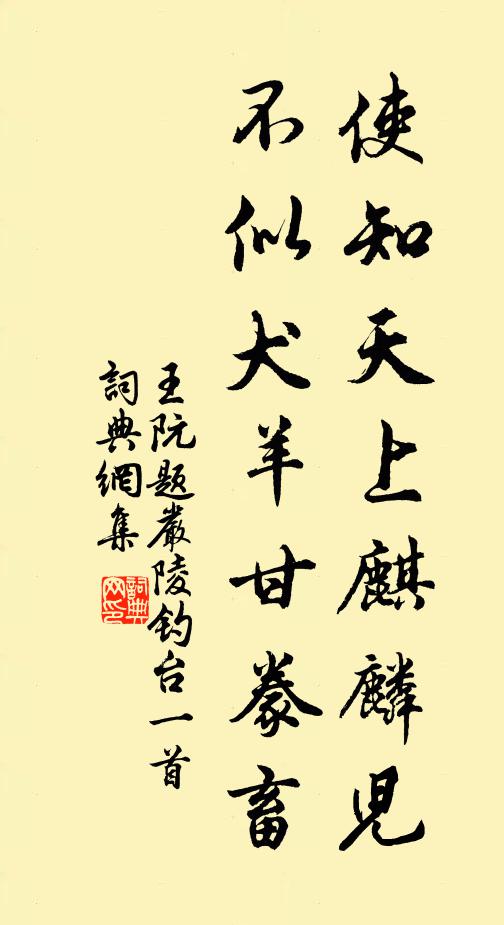 使知天上麒麟児
不似犬羊甘豢畜
王阮題嚴陵釣台一首
詞典網集
詞典网印